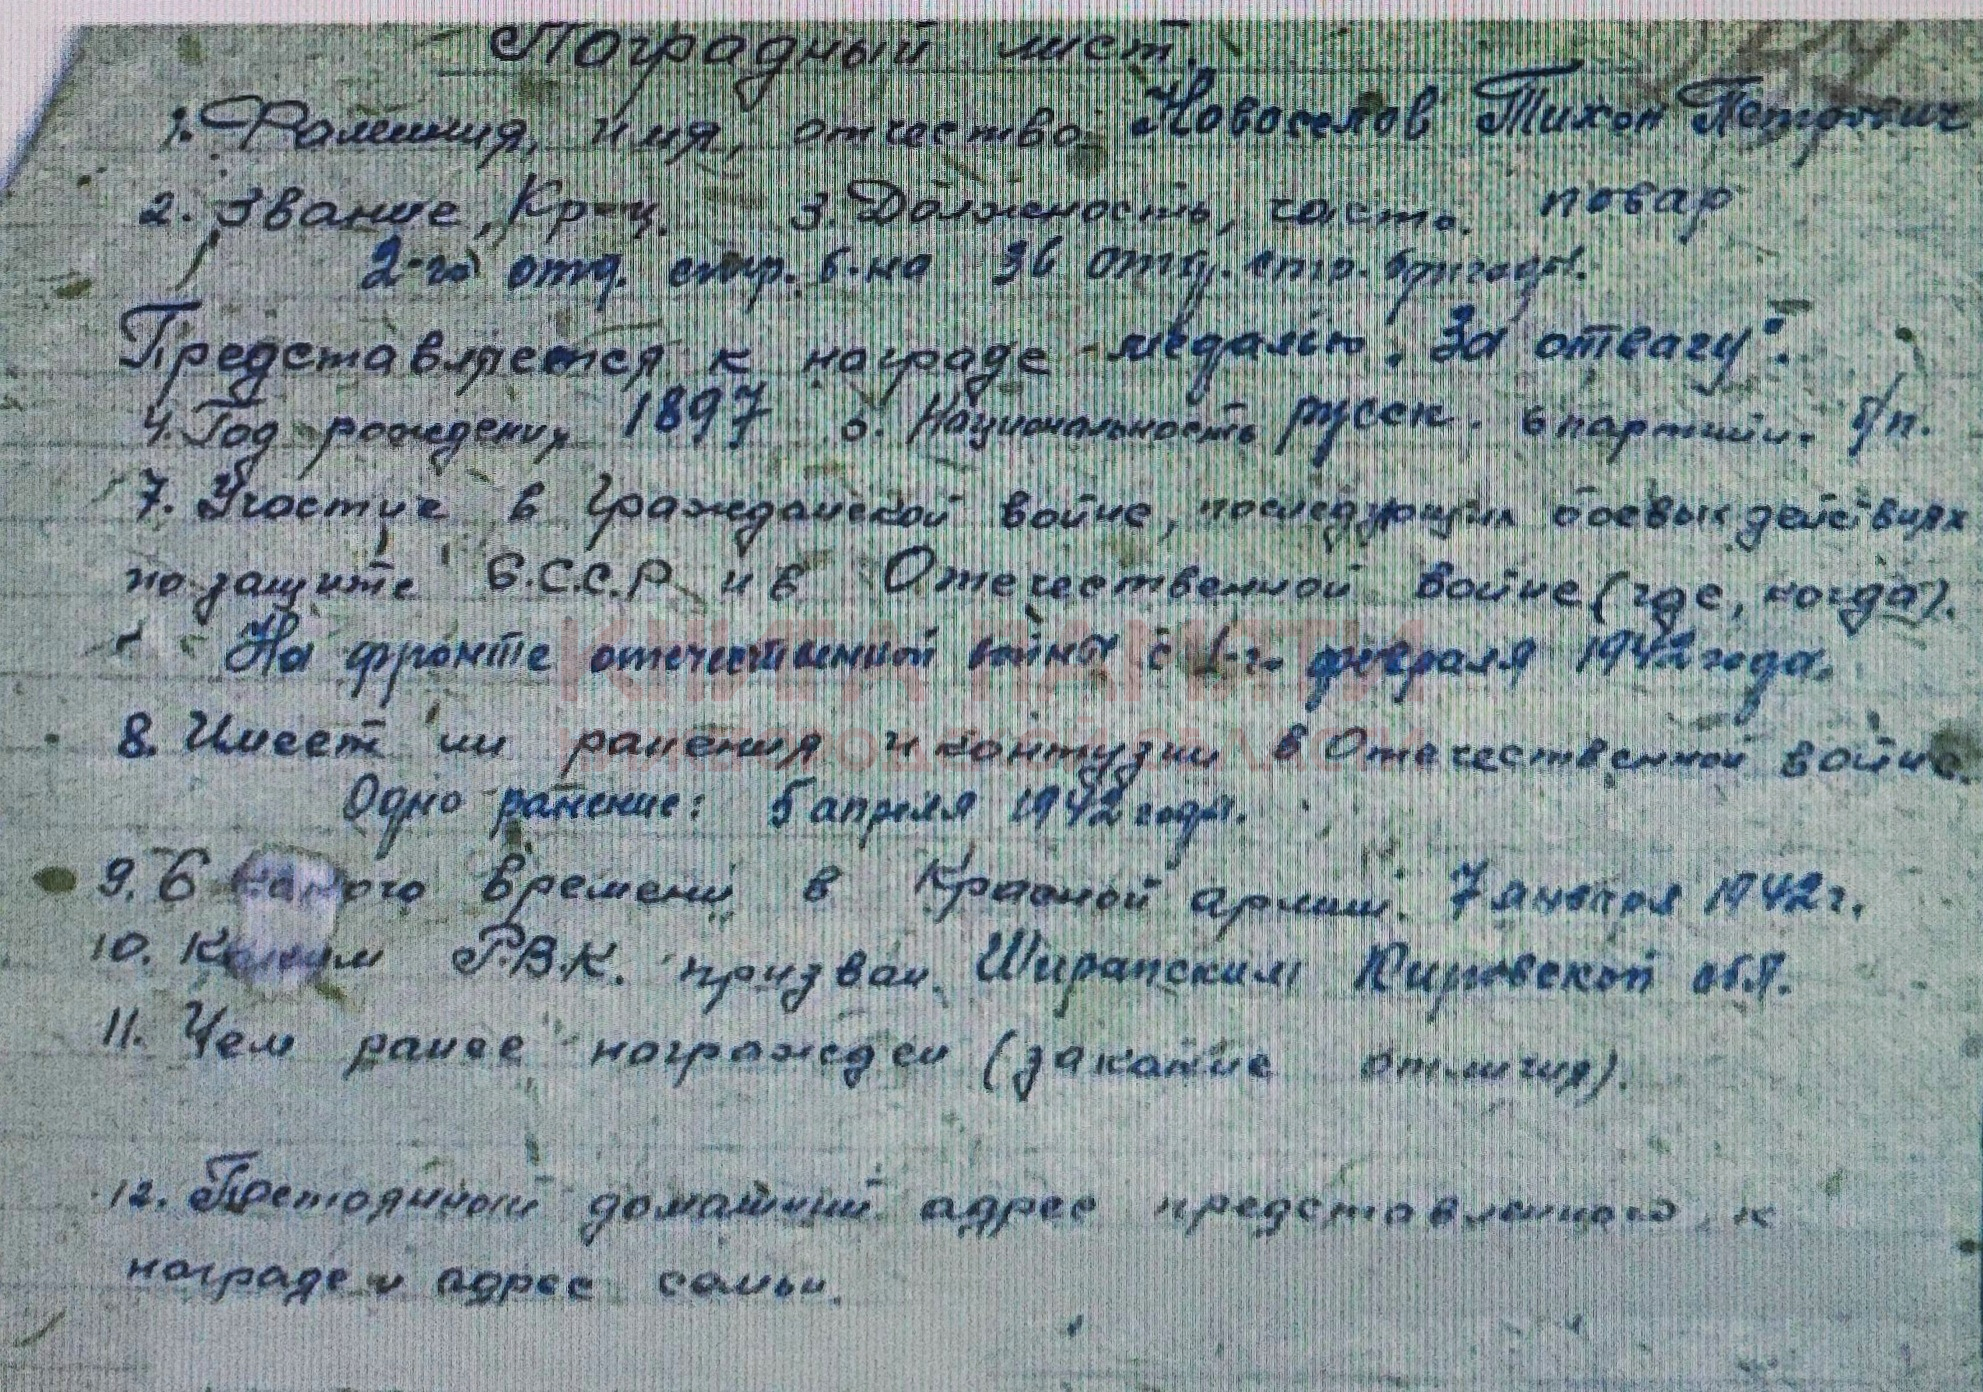 Наградный лист.
1. Фамилия, имя, отчество Новоселов Тихон Петрович
2. Звание, Кр-ц. 3. Должность, часть. повар
2-го отд. стр. б-на 36 отд. стр. бригады.
Представляется к награде медалью "За отвагу".
4. Год рождения 1897 5. Национальность русск. 6 партийн. б/п.
7. Участие в гражданской войне, последующих боевых действиях
по защите С.С.С.Р. и в Отечественной войне (где, когда).
На фронте отечественной войны с 1-го февраля 1942 года.
8. Имеет ли ранения и контузии в Отечественной войне.
Одно ранение: 5 апреля 1942 года.
9. С какого времени в Красной армии. 7 января 1942 г.
10. Каким Р.В.К. призван. Кировской обл.
11. Чем ранее награжден (за какие отличия).
12. Постоянный домашний адрес представленного к
награде и адрес семьи.
КНИГА ПАМЯТИ